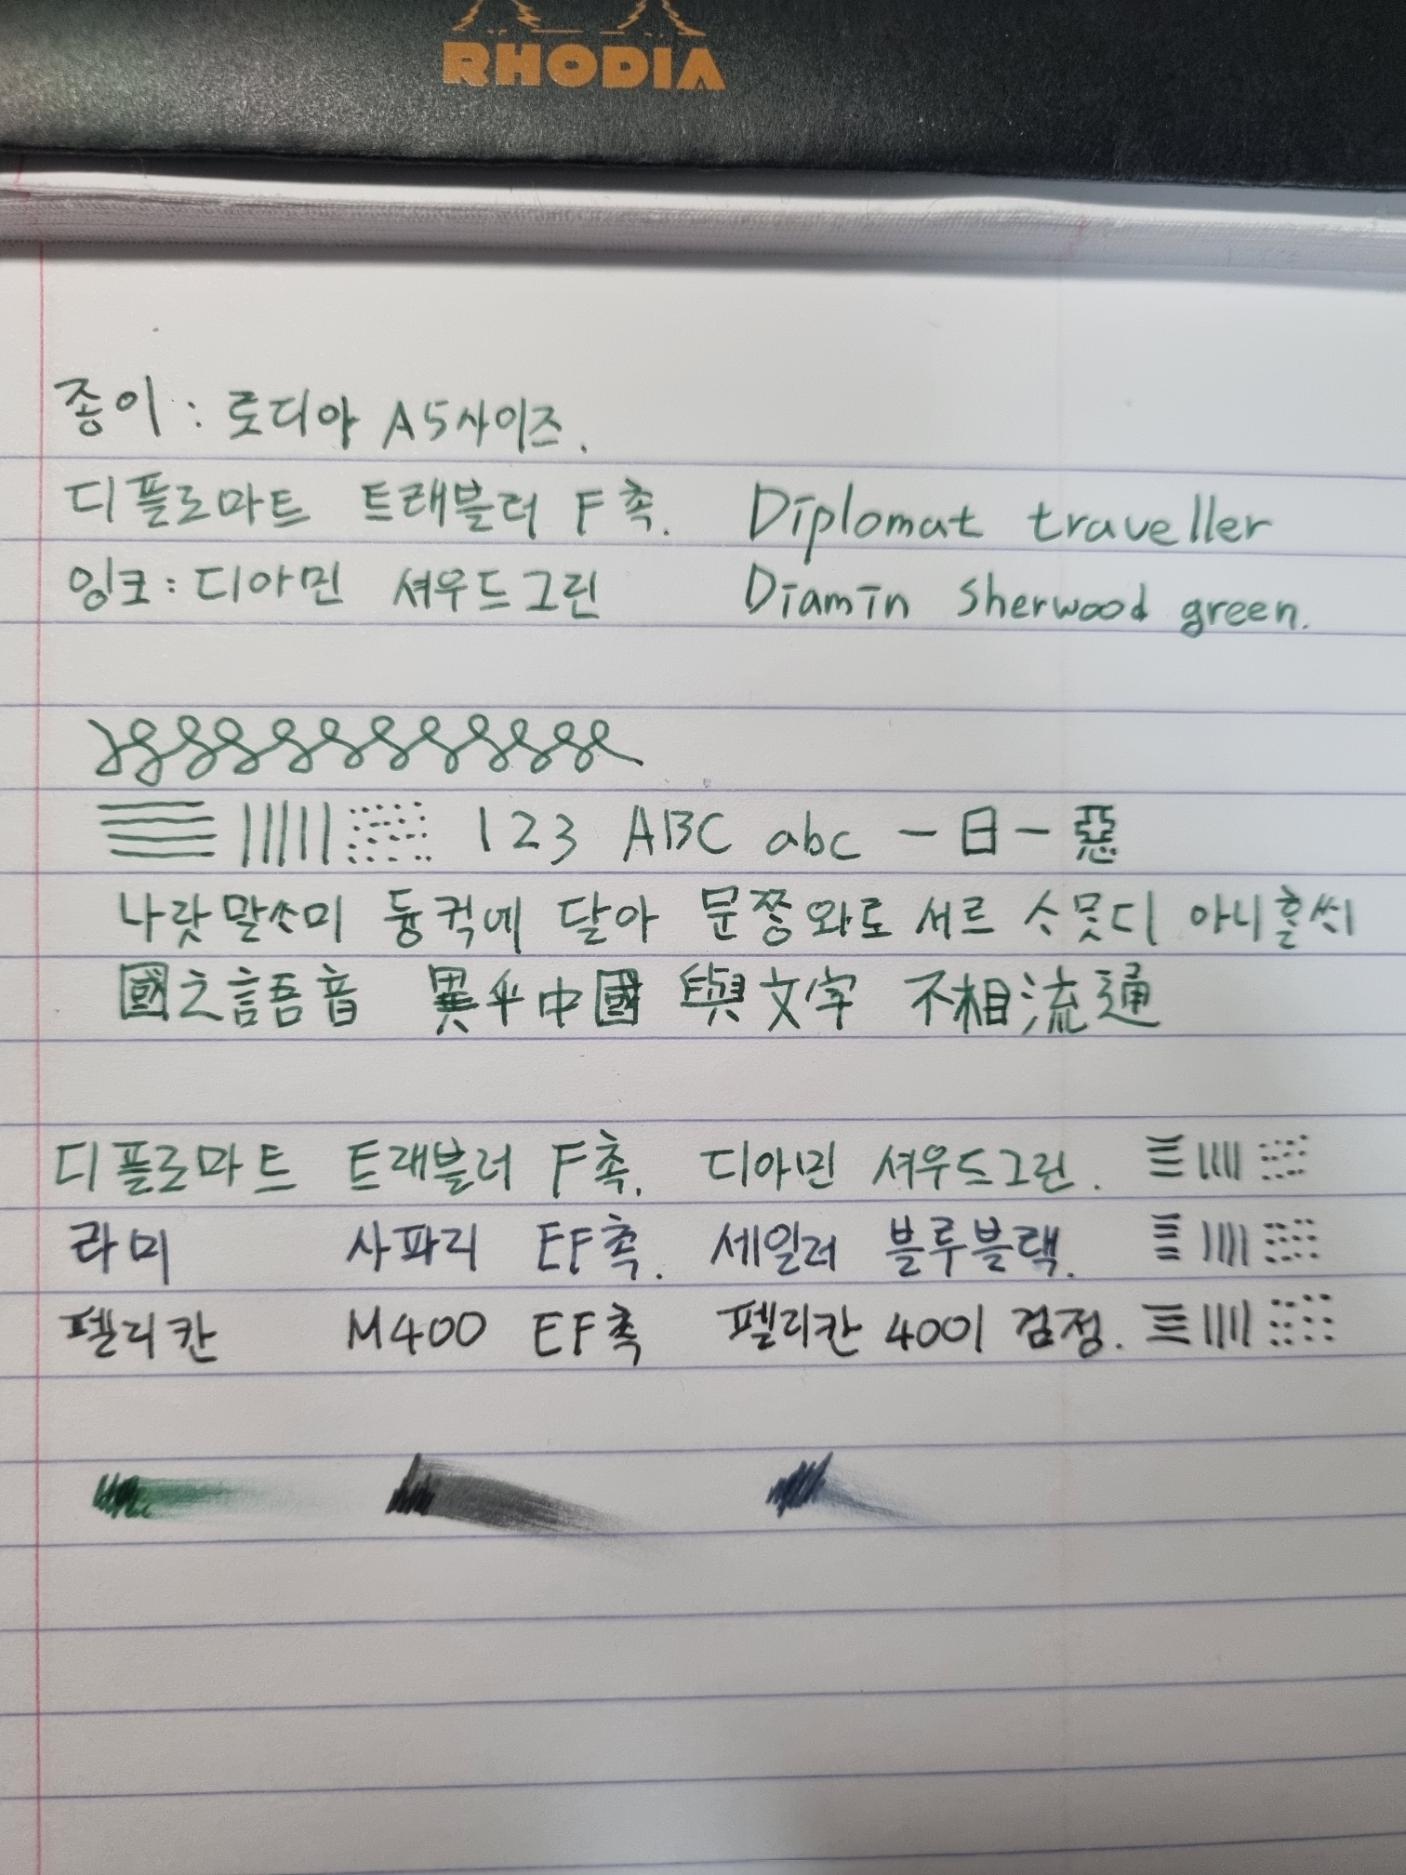 RHODIA
종이 : 로디아 A5사이즈.
디플로마트 트래블러 F촉. Diplomat traveller
잉크 : 디아민 셔우드그린 Diamin Sherwood green.
123 ABC abc 一日一惡
나랏말ᄊᆞ미 듕귁에 달아 문ᄍᆞᆼ와로 서르 ᄉᆞᄆᆞᆺ디 아니ᄒᆞᆯᄊᆡ
國之語音 異乎中國 與文字 不相流通
디플로마트 트래블러 F촉. 디아민 셔우드그린.
라미 사파리 EF촉. 세일러 블루블랙.
펠리칸 M400 EF촉 펠리칸 4001 검정.